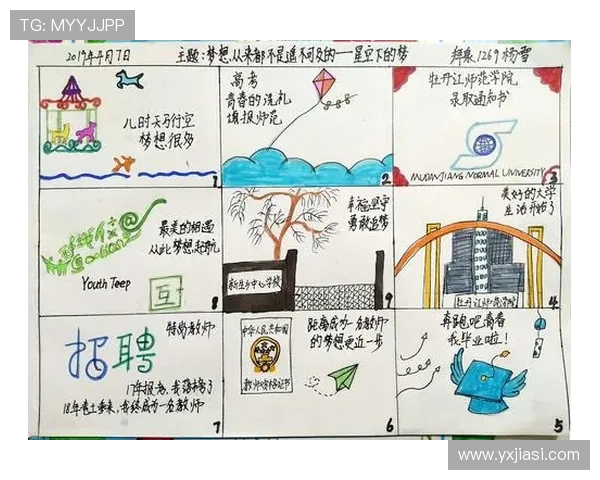 TG: MYYJJPP
2019年4月7日
主题:梦想,从来都不是遥不可及的——星空下的梦
拜泉1269杨雪
儿时天马行空
梦想很多
1
高考
青春的洗礼
填报师范
2
牡丹江师范学院
录取通知书
MUDANJIANG NORMAL UNIVERSITY
3
最美的相遇
从此梦想起航
Youth Teep
互
8
幸福坚守
勇敢追梦
新生乡中心学校
9
美好的大学
生活开始了
牡丹江师范学院
4
招聘
特岗教师
17年报考,我落榜了
18年卷土重来,我终成为一名教师
7
中华人民共和国
教师资格证书
距离成为一名教师
的梦想更近一步
6
奔跑吧青春
我毕业啦!
5
www.yxjiasi.com